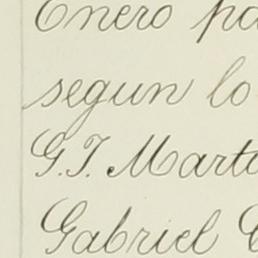 Enero pa
segun lo
G.T. Mart
Gabriel